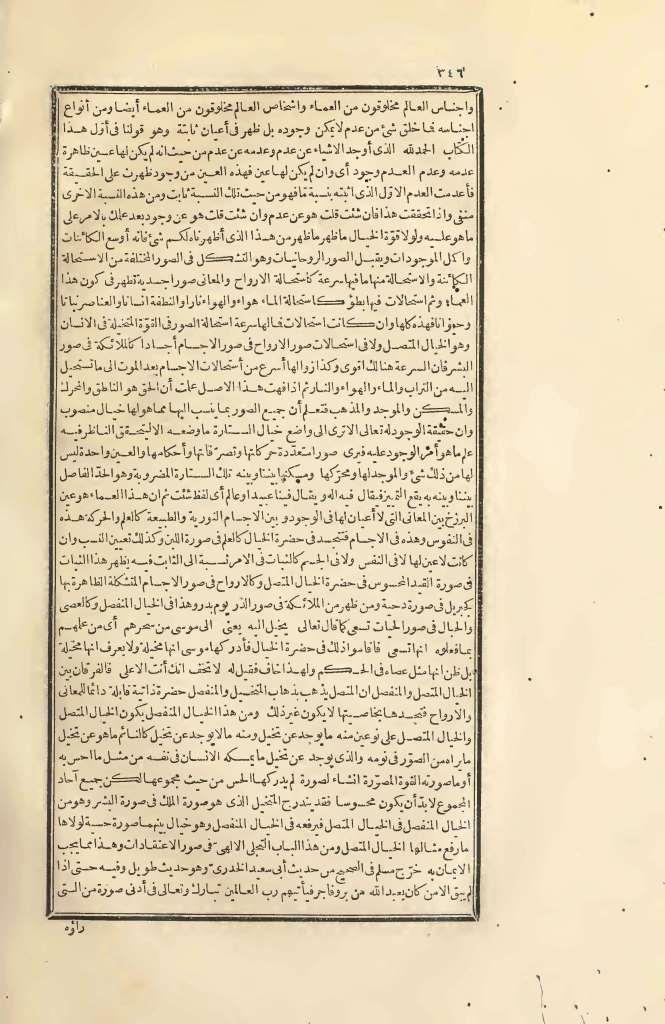 ٣٤٦
واجناس العالم مخلوقون من العماء واشخاص العالم مخلوقون من العماء أيضا ومن أنواع
اجناسه فما خلق شئ من عدم لا يمكن وجوده بل ظهر فى أعيان ثابتة وهو قولنا فى أول هذا
الكتاب الحمد لله الذى أوجد الاشياء عن عدم وعدمه عن عدم من حيث انه لم يكن لها عين ظاهرة
عدمه وعدم العدم وجود أى وان لم يكن لها عين فهذه العين من وجود ظهرت على الحقيقة
فأعدمت العدم الاول الذى اثبته بنسبة ما فهو من حيث تلك النسبة ثابت ومن هذه النسبة الاخرى
منفى واذا تحققت هذا فان شئت قلت هو عن عدم وان شئت قلت هو عن وجود بعد علمك بالامر على
ما هو عليه ولولا قوة الخيال ما ظهر ما ظهر من هذا الذى أظهرناه لكم شئ فانه أوسع الكائنات
واكمل الموجودات ويقبل الصور الروحانيات وهو التشكل فى الصور المختلفة من الاستحالة
الكائنة والاستحالة منها ما فيها سرعة كاستحالة الارواح والمعانى صورا جسدية تظهر فى كون هذا
العماء وثم استحالات فيها بطؤ كاستحالة الماء هواء والهواء نارا والنطفة انسانا والعناصر نباتا
وحيوانا فهذه كلها وان كانت استحالات فما لها سرعة استحالة الصور فى القوة المتخيلة فى الانسان
وهو الخيال المتصل ولا فى استحالات صور الارواح فى صور الاجسام أجسادا كالملائكة فى صور
البشر فان السرعة هنالك اقوى وكذا زوالها أسرع من استحالات الاجسام بعد الموت الى ما تستحيل
اليه من التراب والماء والهواء والنار ثم اذا فهمت هذا الاصل علمت أن الحق هو الناطق والمحرك
والمسكن والموجد والمذهب فتعلم أن جميع الصور بما ينسب اليها مما هو لها خيال منصوب
وان حقيقة الوجود له تعالى الا ترى الى واضع خيال الستارة ما وضعه الا ليتحقق الناظر فيه
علم ما هو أمر الوجود عليه فيرى صورا متعددة حركاتها وتصرفاتها وأحكامها والعين واحدة ليس
لها من ذلك شئ والموجد لها ومحركها ومسكنها بيننا وبينه تلك الستارة المضروبة وهو الحد الفاصل
بيننا وبينه به يقع التمييز فيقال فيه اله ويقال فينا عبيد أو عالم أى لفظ شئت ثم ان هذا العماء هو عين
البرزخ بين المعانى التى لا أعيان لها فى الوجود وبين الاجسام النورية والطبيعة كالعلم والحركة هذه
فى النفوس وهذه فى الاجسام فتتجسد فى حضرة الخيال كالعلم فى صورة اللبن وكذلك تعيين النسب وان
كانت لا عين لها لا فى النفس ولا فى الجسم كالثبات فى الامر نسبة الى الثابت فيه يظهر هذا الثبات
فى صورة القيد المحسوس فى حضرة الخيال المتصل وكالارواح فى صور الاجسام المتشكلة الظاهرة بها
كجبريل فى صورة دحية ومن ظهر من الملائكة فى صور الذر يوم بدر وهذا فى الخيال المنفصل وكالعصى
والحبال فى صور الحيات تسعى كما قال تعالى يخيل اليه يعنى الى موسى من سحرهم أى من علمهم
بما فعلوه انها تسعى فاقاموا ذلك فى حضرة الخيال فأدركها موسى انها مخيلة ولا يعرف انها مخيلة
بل ظن انها مثل عصاه فى الحكم ولهذا خاف فقيل له لا تخف انك أنت الاعلى فالفرقان بين
الخيال المتصل والمنفصل ان المتصل يذهب بذهاب المتخيل والمنفصل حضرة ذاتية قابلة دائما للمعانى
والارواح فتجسدها بخاصيتها لا يكون غير ذلك ومن هذا الخيال المنفصل يكون الخيال المتصل
والخيال المتصل على نوعين منه ما يوجد عن تخيل ومنه ما لا يوجد عن تخيل كالنائم ما هو عن تخيل
ما يراه من الصور فى نومه والذى يوجد عن تخيل ما يمسكه الانسان فى نفسه من مثل ما احس به
أو ما صورته القوة المصورة انشاء لصورة لم يدركها الحس من حيث مجموعها لكن جميع آحاد
المجموع لا بد أن يكون محسوسا فقد يندرج المتخيل الذى هو صورة الملك فى صورة البشر وهو من
الخيال المنفصل فى الخيال المتصل فيرفعه فى الخيال المنفصل وهو خيال بينهما صورة حسية لولاها
ما رفع مثالها الخيال المتصل ومن هذا الباب التجلى الالهى فى صور الاعتقادات وهذا مما يجب
الايمان به خرج مسلم فى الصحيح من حديث أبى سعيد الخدرى وهو حديث طويل وفيه حتى اذا
لم يبق الا من كان يعبد الله من بر وفاجر فيأتيهم رب العالمين تبارك وتعالى فى أدنى صورة من التى
رأوه